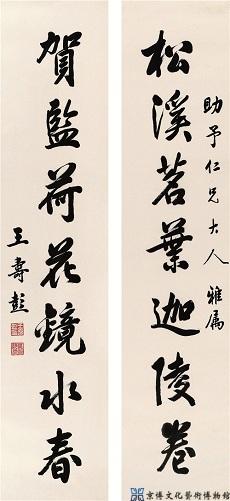 助予仁兄大人 雅属
松溪茗葉迦陵卷
賀監荷花鏡水春
王壽彭
京博文化藝術博物館